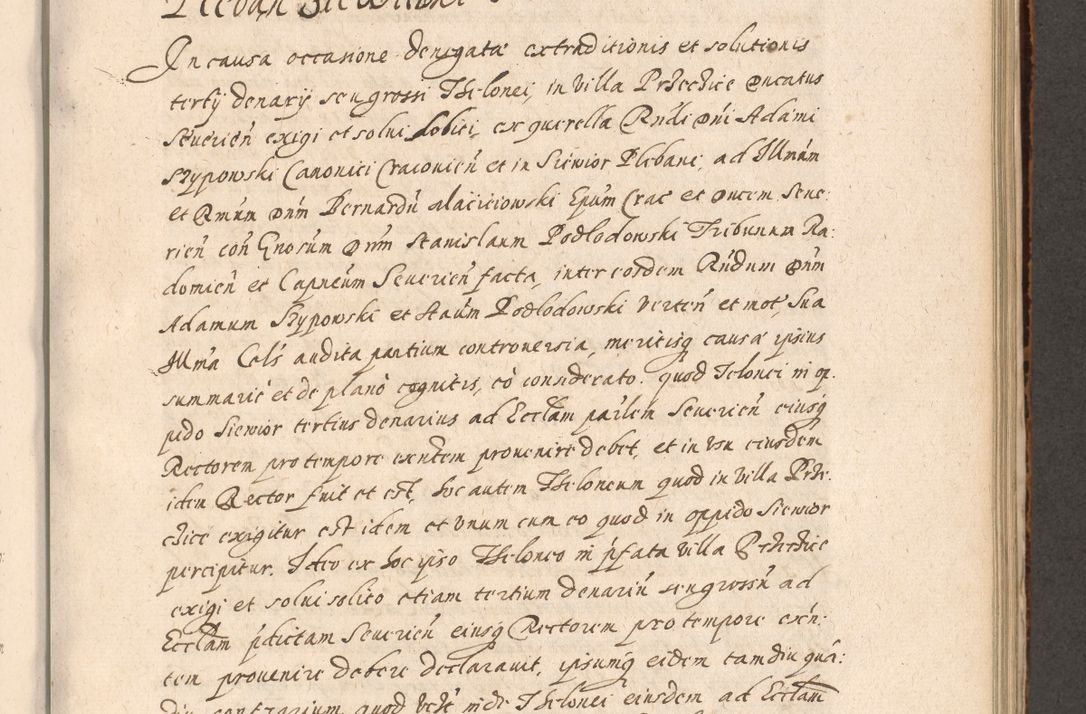 Pleban Siewiensi
In causa occasione denegatæ extraditionis et solutionis
tertij denarij seu grossi Thelonei, in villa Przeczice Ducatus
Seuerien̄ exigi et solui soliti, ex querella Rn̄di Dn̄i Adami
Rzypowski Canonici Cracouien̄ et in Siewior Plebani, ad Illm̄um
et Rm̄um Dn̄m Bernardū Maciciowski Ep̄um Crac et Ducem Seue:
rien̄ con̄ Gn̄osum Dn̄m Stanislaum Podlodowski Tribunum Ra:
domien̄ et Capn̄eum Seuerien̄ facta, inter eosdem Rn̄dum Dn̄m
Adamum Rzypowski et Staūm Podlodowski verten̄ et mot, Sua
Illm̄a Cels audita partium controuersia, meritisq causæ ipsius
summarie et de plano cognitis, eò considerato. quod Telonei in op:
pido Siewior tertius denarius ad Eccl̄am par̄lem Seuerien̄ eiusq
Rectorem pro tempore exn̄tem prouenire debet, et in vsu eiusdem
idem Rector fuit et est, hoc autem Theloneum quod in villa Prze:
czice exigitur est idem et vnum cum eo quod in oppido Siewior
percipitur. Ideo ex hoc ipso Theloneo in p̄fata villa Przeczice
exigi et solui solito etiam tertium denariū seu grossū ad
Eccl̄am p̄dictam Seuerien̄ eiusq Rectorem pro tempore exn̄:
tem prouenire debere declarauit, ipsumq eidem tamdiu quā:
diu contrarium quod Thelonei eiusdem ad Eccl̄am